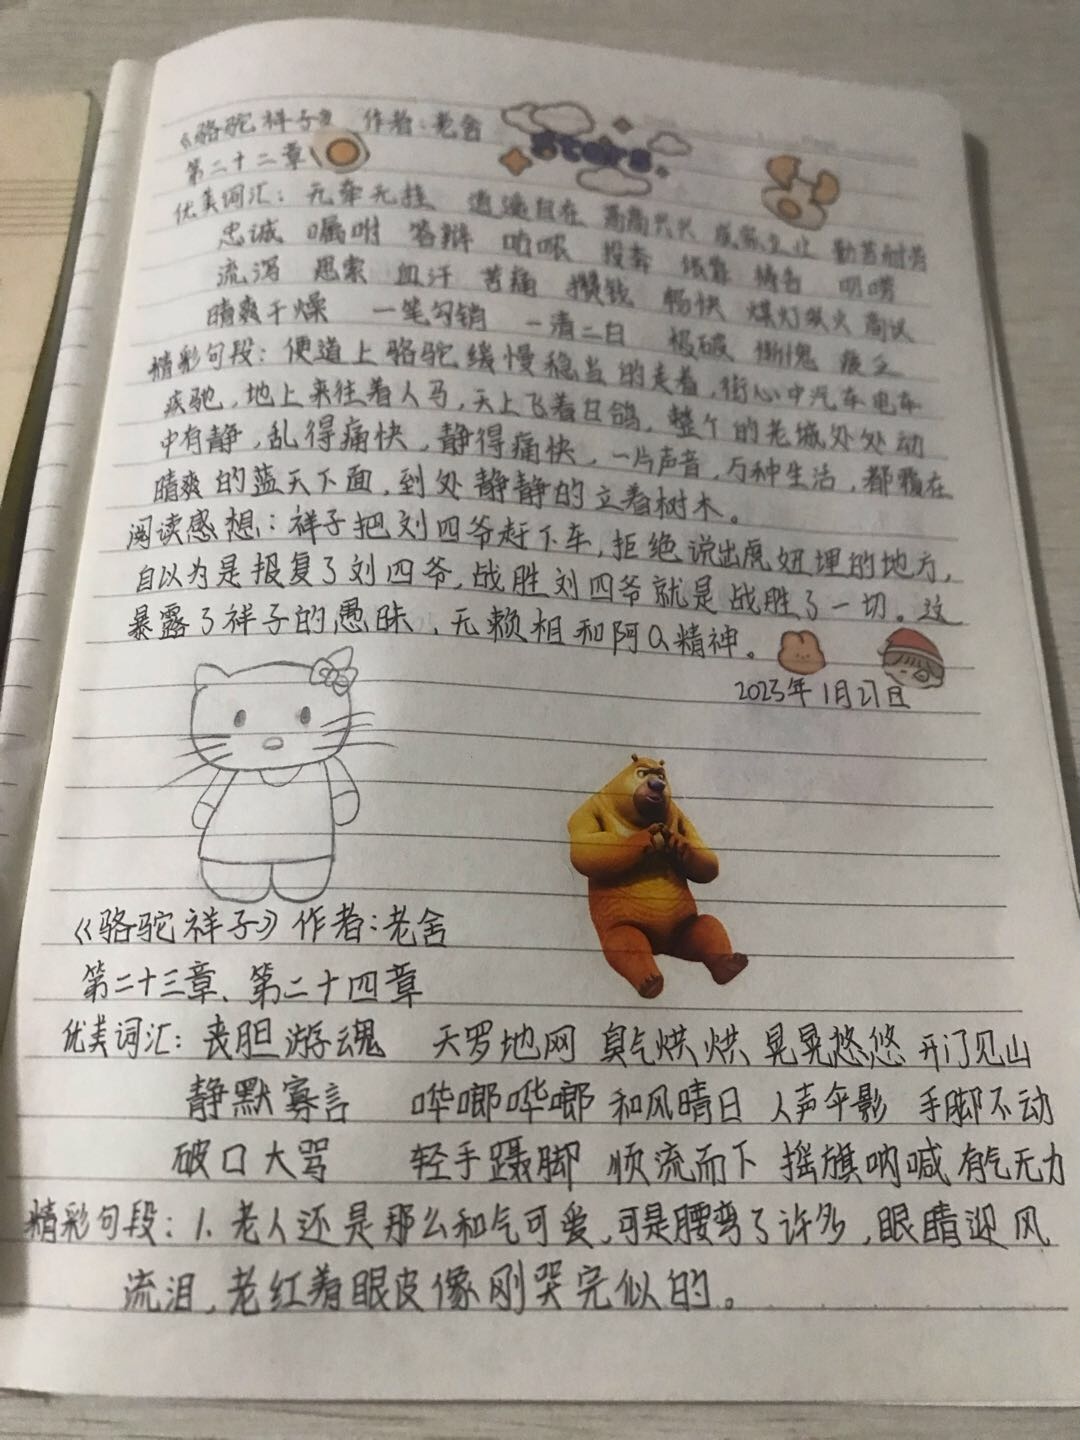 《骆驼祥子》 作者：老舍
Stars
第二十二章
优美词汇：无牵无挂 逍遥自在 高高兴兴 成家立业 勤苦耐劳
忠诚 嘱咐 答辩 呐喊 投奔 依靠 祷告 叨唠
流泻 思索 血汗 苦痛 攒钱 畅快 煤灯炭火 商议
晴爽干燥 一笔勾销 一清二白 揭破 惭愧 疲乏
精彩句段：便道上骆驼缓慢稳当的走着，街心中汽车电车
疾驰，地上来往着人马，天上飞着白鸽，整个的老城处处动
中有静，乱得痛快，静得痛快，一片声音，万种生活，都覆在
晴爽的蓝天下面，到处静静的立着树木。
阅读感想：祥子把刘四爷赶下车，拒绝说出虎妞埋的地方，
自以为是报复了刘四爷，战胜刘四爷就是战胜了一切。这
暴露了祥子的愚昧、无赖相和阿Q精神。
2023年1月27日
《骆驼祥子》作者：老舍
第二十三章、第二十四章
优美词汇：丧胆游魂 天罗地网 臭气烘烘 晃晃悠悠 开门见山
静默寡言 哗啷哗啷 和风晴日 人声伞影 手脚不动
破口大骂 轻手蹑脚 顺流而下 摇旗呐喊 有气无力
精彩句段：1、老人还是那么和气可爱，可是腰弯了许多，眼睛迎风
流泪，老红着眼皮像刚哭完似的。